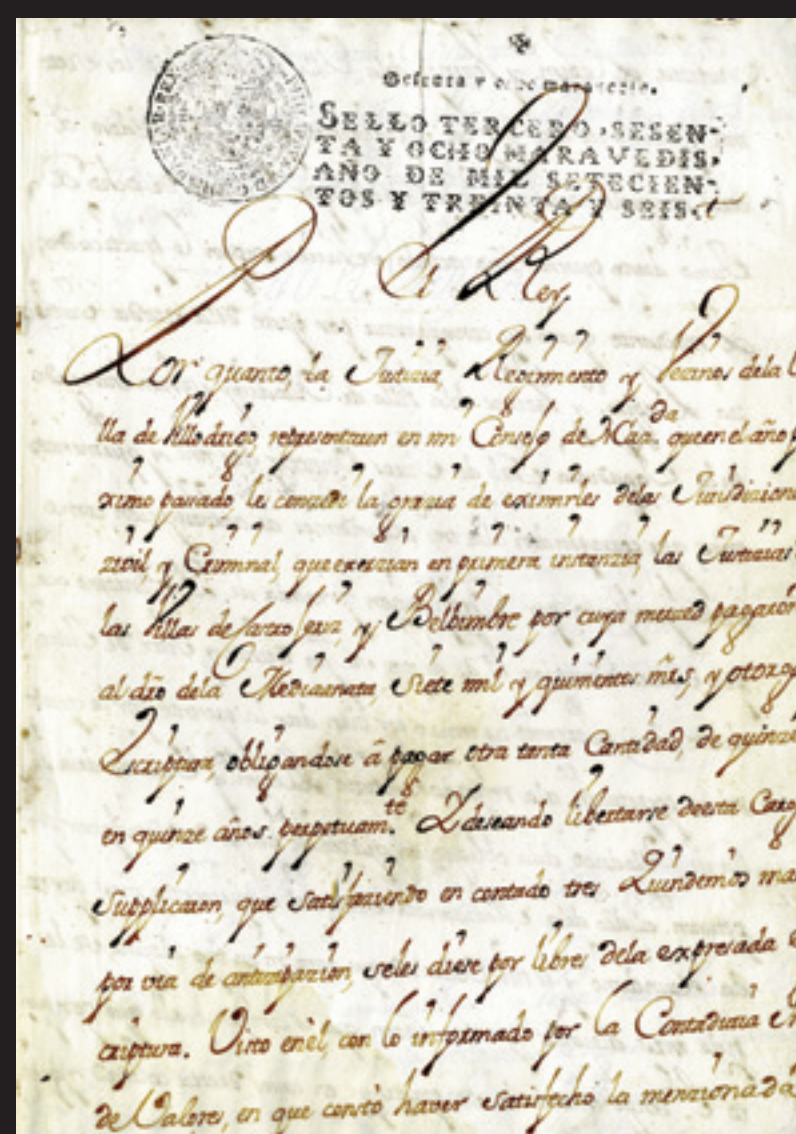 Sesenta y ocho maravedis.
SELLO TERCERO, SESEN-
TA Y OCHO MARAVEDIS,
AÑO DE MIL SETECIEN-
TOS Y TREINTA Y SEIS.
El Rey
Por quanto, la Justicia, Rexim.to y Vecinos dela
lla de Villodrigo, representaron en mi Consejo de Haz.da que en el año
ximo pasado, le concedi la gracia de eximirles delas Jurisdicione
zivil y Criminal, que exerzian en primera instanzia, las Justicias
las Villas de Castro Xeriz, y Belbimbre por cuya merced pagaron
al dro dela Mediaanata, siete mil y quinientos mrs, y otorg
Escriptura, obligandose â pagar otra tanta Cantidad, de quinze
en quinze años perpetuam.te Y deseando libertarse de esta Carg
supplicaron, que satisfaziendo en contado tres Quindenios
por via de antizipazion, seles diese por libres dela expresada
criptura. Visto enèl, con lo informado por la Contaduria
de Valores, en que constò haver satisfecho la menzionada